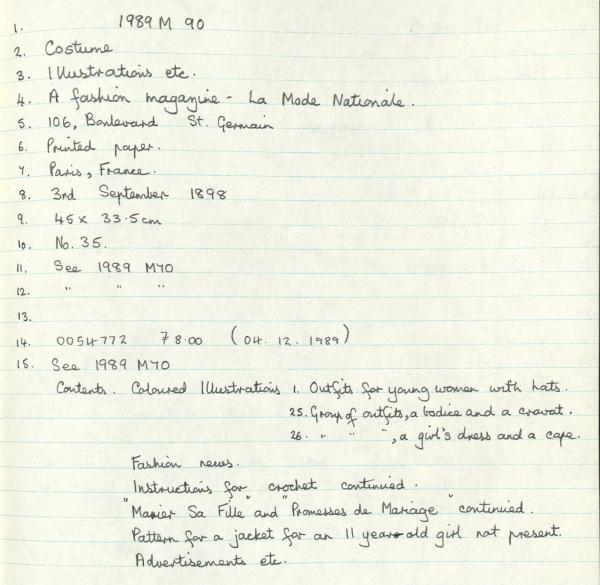 1. 1989 M 90
2. Costume
3. Illustrations etc.
4. A fashion magazine - La Mode Nationale.
5. 106, Boulevard St. Germain
6. Printed paper.
7. Paris, France.
8. 3rd September 1898
9. 45 x 33.5cm
10. No. 35.
11. See 1989 M70
12. " " "
13.
14. 0054772 78.00 (04. 12. 1989)
15. See 1989 M70
Contents. Coloured Illustrations 1. Outfits for young women with hats.
25. Group of outfits, a bodice and a cravat.
26. " " ", a girl's dress and a cape.
Fashion news.
Instructions for crochet continued.
"Marier Sa Fille" and "Promesses de Mariage" continued.
Pattern for a jacket for an 11 year old girl not present.
Advertisements etc.